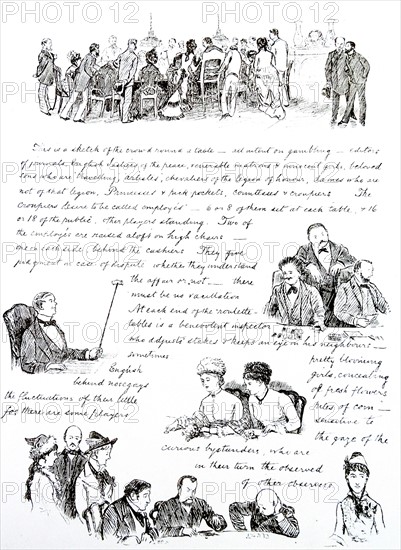 This is a sketch of the crowd round a table — all intent on gambling — editors
of journals, English Justices of the peace, venerable matrons & innocent girls, beloved
sons who are travelling, artistes, chevaliers of the legion of honour, dames who are
not of that legion, Princesses & pick pockets, countesses & croupiers The
croupiers desire to be called employés — 6 or 8 of them sit at each table, & 16
or 18 of the public, other players standing. Two of
the employés are raised aloft on high chairs —
one on each side, behind the cashiers They give
judgment in case of dispute whether they understand
the affair or not, — there
must be no vacillation
At each end of the roulette-
tables is a benevolent inspector
who adjusts stakes & keeps an eye on his neighbour
sometimes
pretty blooming
English
girls, concealing
behind nosegays
of fresh flowers
the fluctuations of their little
for there are some players
sensitive to
the gaze of the
curious bystanders, who are
in their turn the observed
of other observers